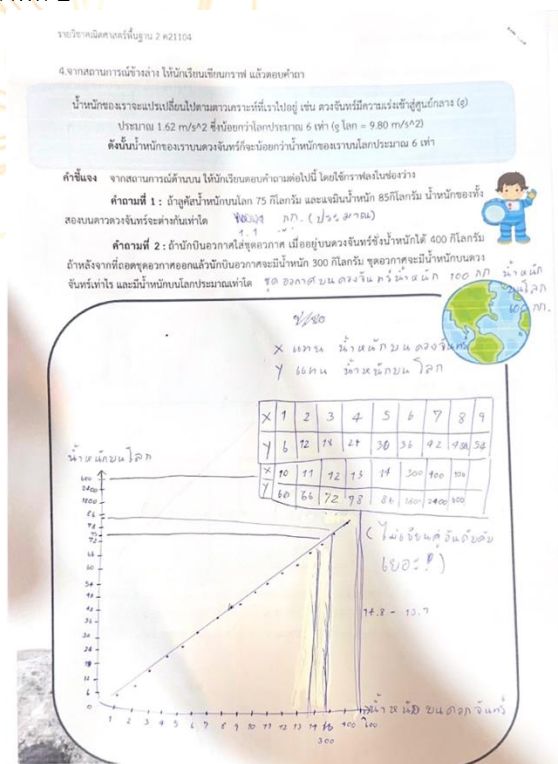 รายวิชาคณิตศาสตร์พื้นฐาน 2 ค21104
4.จากสถานการณ์ข้างล่าง ให้นักเรียนเขียนกราฟ แล้วตอบคำถาม
น้ำหนักของเราจะแปรเปลี่ยนไปตามดาวเคราะห์ที่เราไปอยู่ เช่น ดวงจันทร์มีความเร่งเข้าสู่ศูนย์กลาง (g)
ประมาณ 1.62 m/s^2 ซึ่งน้อยกว่าโลกประมาณ 6 เท่า (g โลก = 9.80 m/s^2)
ดังนั้นน้ำหนักของเราบนดวงจันทร์ก็จะน้อยกว่าน้ำหนักของเราบนโลกประมาณ 6 เท่า
คำชี้แจง จากสถานการณ์ด้านบน ให้นักเรียนตอบคำถามต่อไปนี้ โดยใช้กราฟลงในช่องว่าง
คำถามที่ 1 : ถ้าลูคัสน้ำหนักบนโลก 75 กิโลกรัม และแจมินน้ำหนัก 85กิโลกรัม น้ำหนักของทั้ง
สองบนดาวดวงจันทร์จะต่างกันเท่าใด กก. (ประมาณ)
1.1
คำถามที่ 2 : ถ้านักบินอวกาศใส่ชุดอวกาศ เมื่ออยู่บนดวงจันทร์ชั่งน้ำหนักได้ 400 กิโลกรัม
ถ้าหลังจากที่ถอดชุดอวกาศออกแล้วนักบินอวกาศจะมีน้ำหนัก 300 กิโลกรัม ชุดอวกาศจะมีน้ำหนักบนดวง
จันทร์เท่าไร และมีน้ำหนักบนโลกประมาณเท่าใด ชุดอวกาศบนดวงจันทร์น้ำหนัก 100 กก น้ำหนัก
บนโลก
600 กก.
X แทน น้ำหนักบนดวงจันทร์
Y แทน น้ำหนักบนโลก
X 1 2 3 4 5 6 7 8 9
Y 6 12 18 24 30 36 42 54
X 10 11 12 13 14 300 400 100
Y 60 66 72 78 84 1800 2400 600
(ไม่เขียนคู่อันดับ
เยอะ!)
น้ำหนักบนโลก
600
2400
1800
84
78
75
72
66
60
54
48
42
36
30
24
18
12
6
0
14.8 -
1 2 3 4 5 6 7 8 9 10 11 12 13 14 400
300
น้ำหนักบนดวงจันทร์